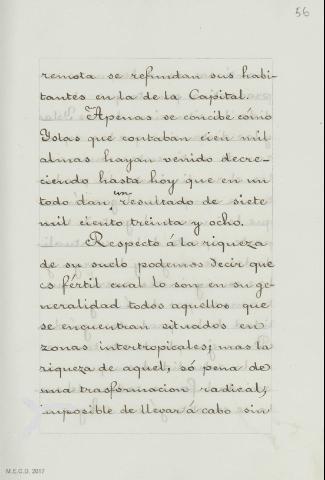 56
remota se refundan sus habi-
tantes en la de la Capital.
Apenas se concibe cómo
Yslas que contaban cien mil
almas hayan venido decre-
ciendo hasta hoy que en un
todo dan un resultado de siete
mil ciento treinta y ocho.
Respecto á la riqueza
de su suelo podemos decir que
es fértil cual lo son en su ge-
neralidad todos aquellos que
se encuentran situados en
zonas intertropicales; mas la
riqueza de aquel, só pena de
una trasformacion radical,
imposible de llevar á cabo sin
M.E.C.D. 2017